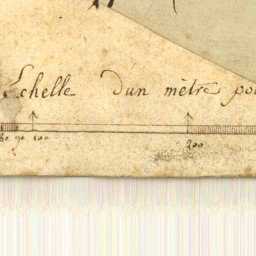 Echelle d'un mètre po
80 90 100
200